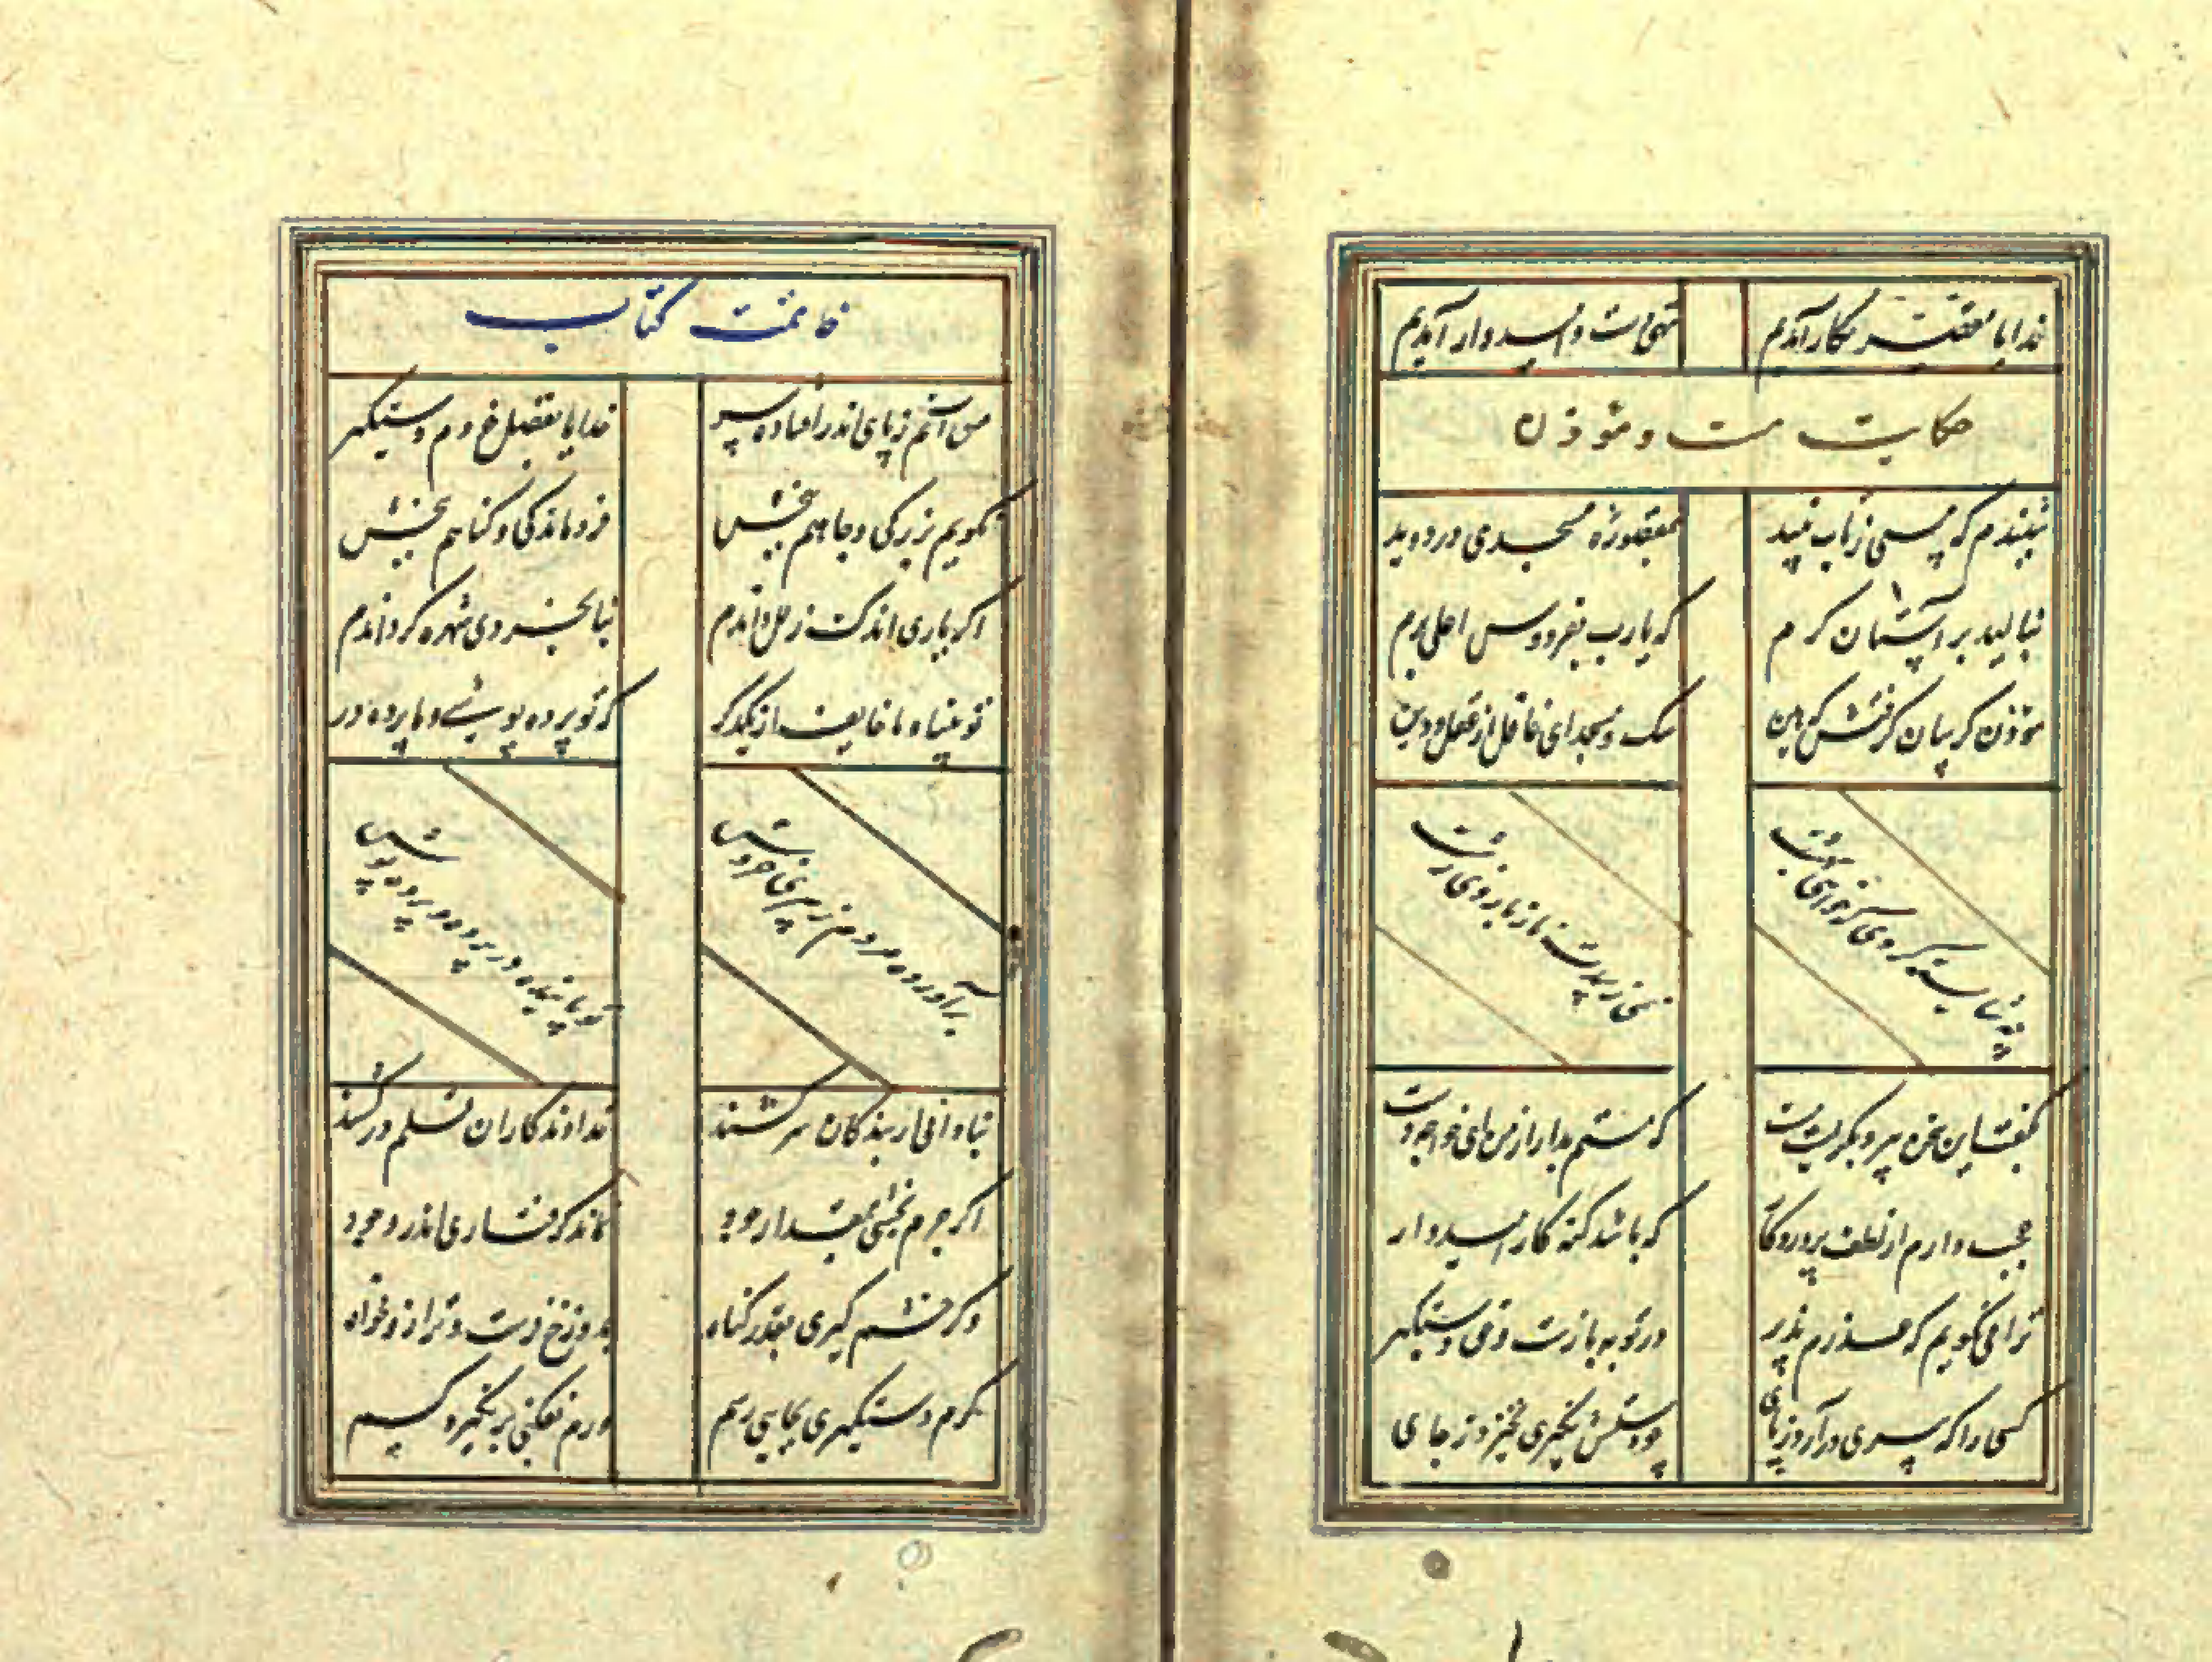 خدایا مقصر بکار آمدیم
تهی‌دست و امیدوار آمدیم
حکایت مست و مؤذن
شنیدم که مستی ز تاب نبید
بمقصوره مسجدی در دوید
بنالید بر آستان کرم
که یارب بفردوس اعلی برم
مؤذن گریبان گرفتش که هین
سگ و مسجد ای غافل از عقل و دین
چه شایسته کردی که خواهی بهشت
نمی‌زیبدت ناز با روی زشت
بگفت این سخن پیر و بگریست مست
که مستم بدار از من ای خواجه دست
عجب داری از لطف پروردگار
که باشد گنه کار امیدوار
ترا می نگویم که عذرم پذیر
در توبه بازست و حق دستگیر
کسی را که پیری در آرد ز پای
چو دستش نگیری نخیزد ز جای
خاتمت کتاب
من آنم ز پای اندر افتاده پیر
خدایا بفضل خودم دستگیر
نگویم بزرگی و جاهم ببخش
فروماندگی و گناهم ببخش
اگر یاری اندک زلل داندم
بنابخردی شهره گرداندم
تو بینا و ما خایف از یکدگر
که تو پرده پوشی و ما پرده در
برآورده مردم ز بیرون خروش
تو با بنده در پرده و پرده پوش
بنادانی ار بندگان سر کشند
خداوندگاران قلم در کشند
اگر جرم بخشی بمقدار جود
نماند گرفتاری اندر وجود
وگر خشم گیری بقدر گناه
بدوزخ فرست و ترازو مخواه
گرم دستگیری بجایی رسم
ورم بفکنی بر نگیرد کسم